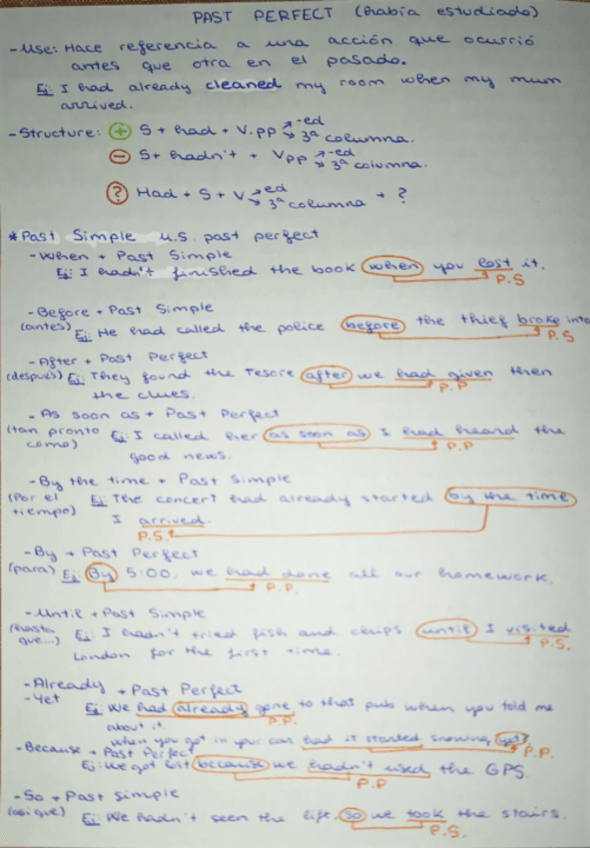 PAST PERFECT (había estudiado)
-Use: Hace referencia a una acción que ocurrió
antes que otra en el pasado.
Ej: I had already cleaned my room when my mum
arrived.
-Structure: + S + had + V.pp -ed
3ª columna.
- S + hadn't + Vpp -ed
3ª columna.
? Had + S + V ed + ?
3ª columna
*Past Simple u.s. past perfect
-When + Past Simple
Ej: I hadn't finished the book when you lost it.
P.S
-Before + Past Simple
(antes) Ej: He had called the police before the thief broke into
P.S
-After + Past Perfect
(después) Ej: They found the Tesore after we had given then
P.P
the clues.
-As soon as + Past Perfect
(tan pronto Ej: I called her as soon as I had heard the
como) good news.
P.P
-By the time + Past Simple
(Por el Ej: The concert had already started by the time
tiempo) I arrived.
P.S.
-By + Past Perfect
(para) Ej: By 5:00, we had done all our homework.
P.P.
-Until + Past Simple
(hasta Ej: I hadn't tried fish and chips until I visited
que...) London for the first time.
P.S.
-Already + Past Perfect
-Yet
Ej: We had already gone to that pub when you told me
P.P.
about it.
When you got in your car had it started snowing yet?
P.P.
-Because + Past Perfect
Ej: We got lost because we hadn't used the GPS.
P.P
-So + Past Simple
(así que) Ej: We hadn't seen the lift, so we took the stairs.
P.S.